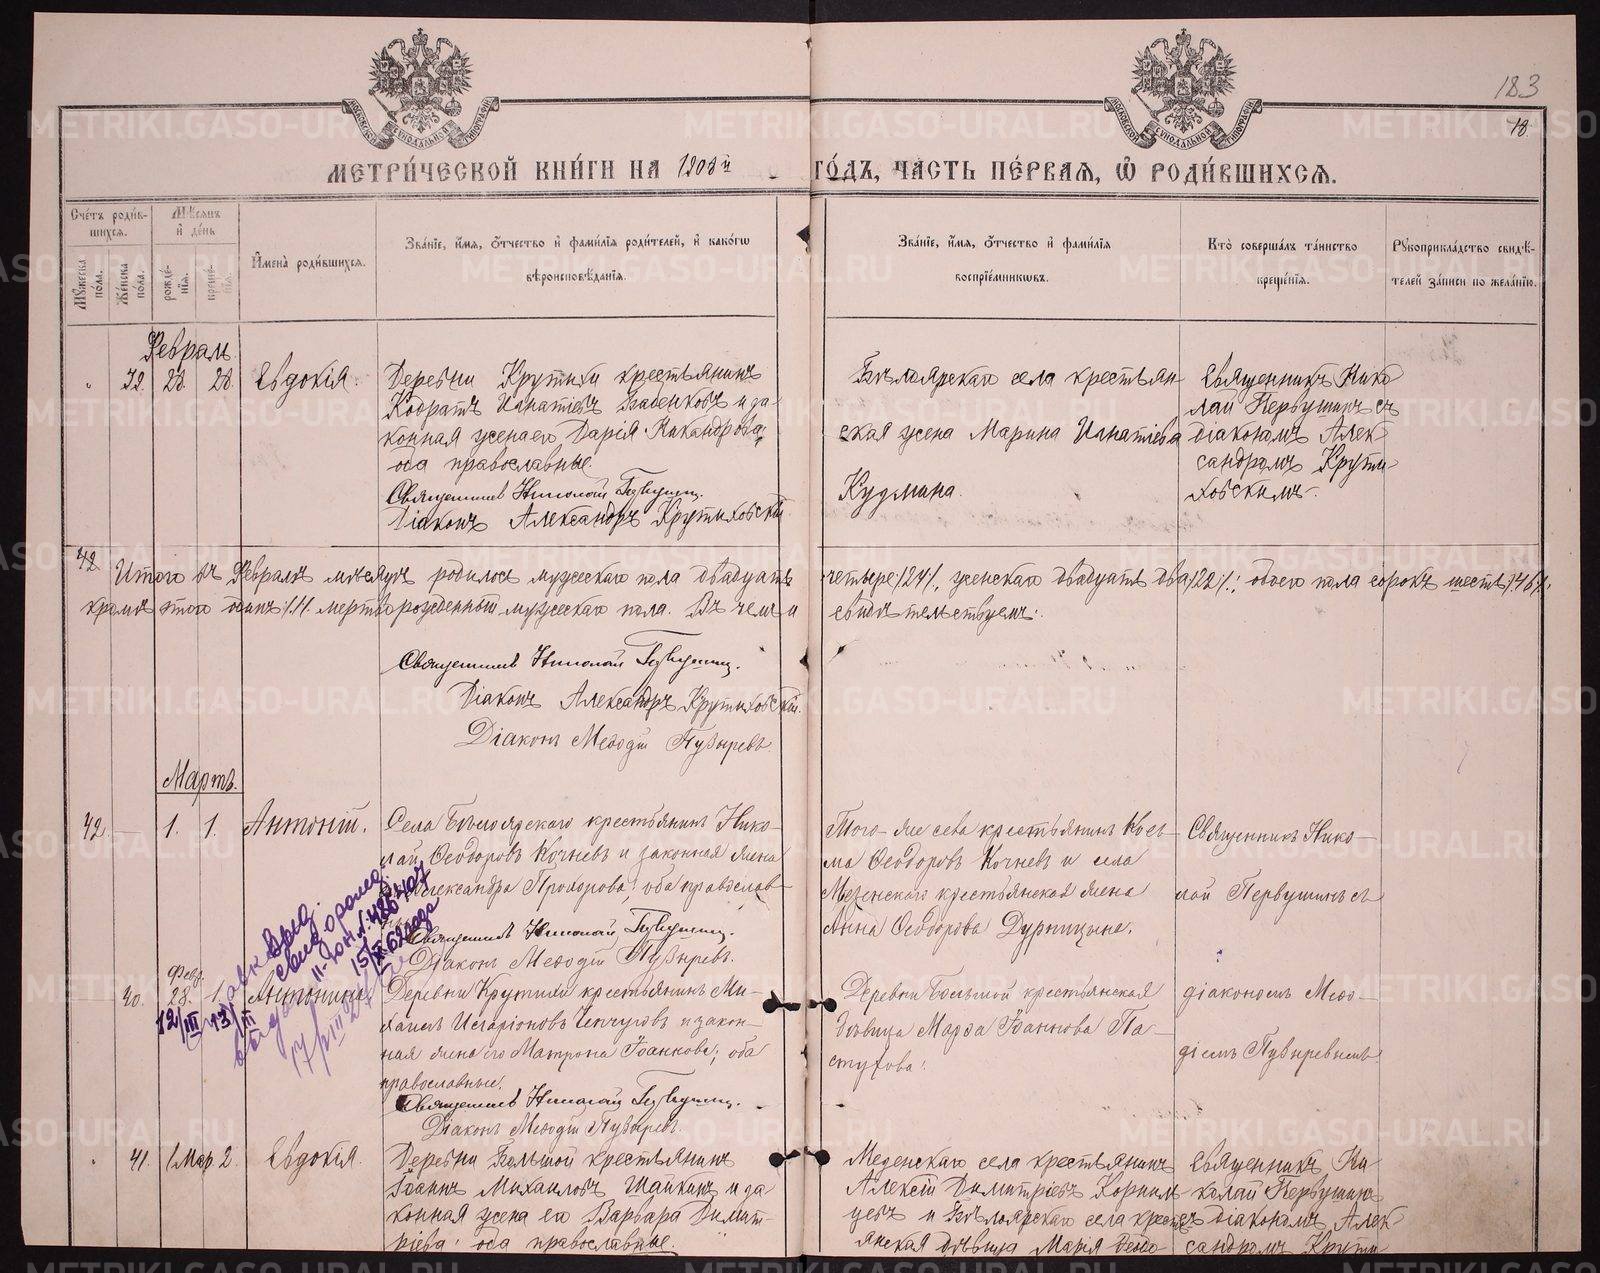 183
18.
МЕТРИ́ЧЕСКОЙ КНИ́ГИ НА 1903й ГО́ДЪ, ЧА́СТЬ ПЕ́РВАЯ, Ѽ РОДИ́ВШИХСЯ.
Сче́тъ роди́в-
шихся.
Му́жеска по́ла.
Же́нска по́ла.
Мѣ́сяцъ
и҆ де́нь
рожде́-
нїя.
креще́-
нїя.
И҆мена̀ роди́вшихся.
Зва́нїе, и҆́мя, о҆́тчество и҆ фами́лїя роди́телей, и҆ како́гѡ
вѣроисповѣ́данїя.
Зва́нїе, и҆́мя, о҆́тчество и҆ фами́лїя
воспрїе́мникѡвъ.
Кто̀ соверша́лъ та́инство
креще́нїя.
Рукоприкла́дство свидѣ́-
телей за́писи по жела́нїю.
Февраль
28. 28. Евдокія.
Деревни Крутихи крестьянинъ
Кодратъ Игнатіевъ Бабенковъ и за-
конная жена его Дарія Никандрова,
оба православные.
Священникъ Николай Первушинъ.
Діаконъ Александръ Крутиховскій
Бѣлоярскаго села крестьян-
ская жена Марина Игнатіева
Кудмина.
Священникъ Нико
лай Первушинъ съ
діакономъ Алек
сандромъ Крути-
ховскимъ.
Итого въ Февралѣ мѣсяцѣ родилось мужескаго пола двадцать четыре /24/, женскаго двадцать два /22/; обоего пола сорокъ шесть /46/;
кромѣ этого одинъ /1/ мертворожденный мужескаго пола. Въ чемъ и свидѣтельствуемъ:
Священникъ Николай Первушинъ.
Діаконъ Александръ Крутиховскій.
Діаконъ Меѳодій Пузыревъ
Мартъ.
42. 1. 1. Антоній.
Села Бѣлоярскаго крестьянинъ Нико-
лай Ѳеодоровъ Кочневъ и законная жена
Александра Прохорова, оба православ-
Священникъ Николай Первушинъ.
Діаконъ Меѳодій Пузыревъ.
Того-же села крестьянинъ Косъ-
ма Ѳеодоровъ Кочневъ и села
Мезенскаго крестьянская жена
Анна Ѳеодорова Дурницына.
Священникъ Нико-
лай Первушинъ съ
діакономъ Меѳо-
діемъ Пузыревымъ
40. Февр. 28. 1. Антонина
Деревни Крутихи крестьянинъ Ми-
хаилъ Иларіоновъ и закон-
ная жена его Матрона Іоаннова; оба
православные.
Священникъ Николай Первушинъ.
Діаконъ Меѳодій Пузыревъ.
Деревни Большой крестьянская
дѣвица Марѳа Іоаннова Па-
стухова.
41. 1 Мар. 2. Евдокія.
Деревни Большой крестьянинъ
Іоаннъ Михаиловъ Шайкинъ и за
конная жена его Варвара Димит-
ріева; оба православные.
Мезенскаго села крестьянинъ
Алексій Димитріевъ Корниль-
цевъ и Бѣлоярскаго села кресть
янская дѣвица Марія Ѳеодо
Священникъ Ни
колай Первушинъ
съ діакономъ Алек
сандромъ Крути
METRIKI.GASO-URAL.RU